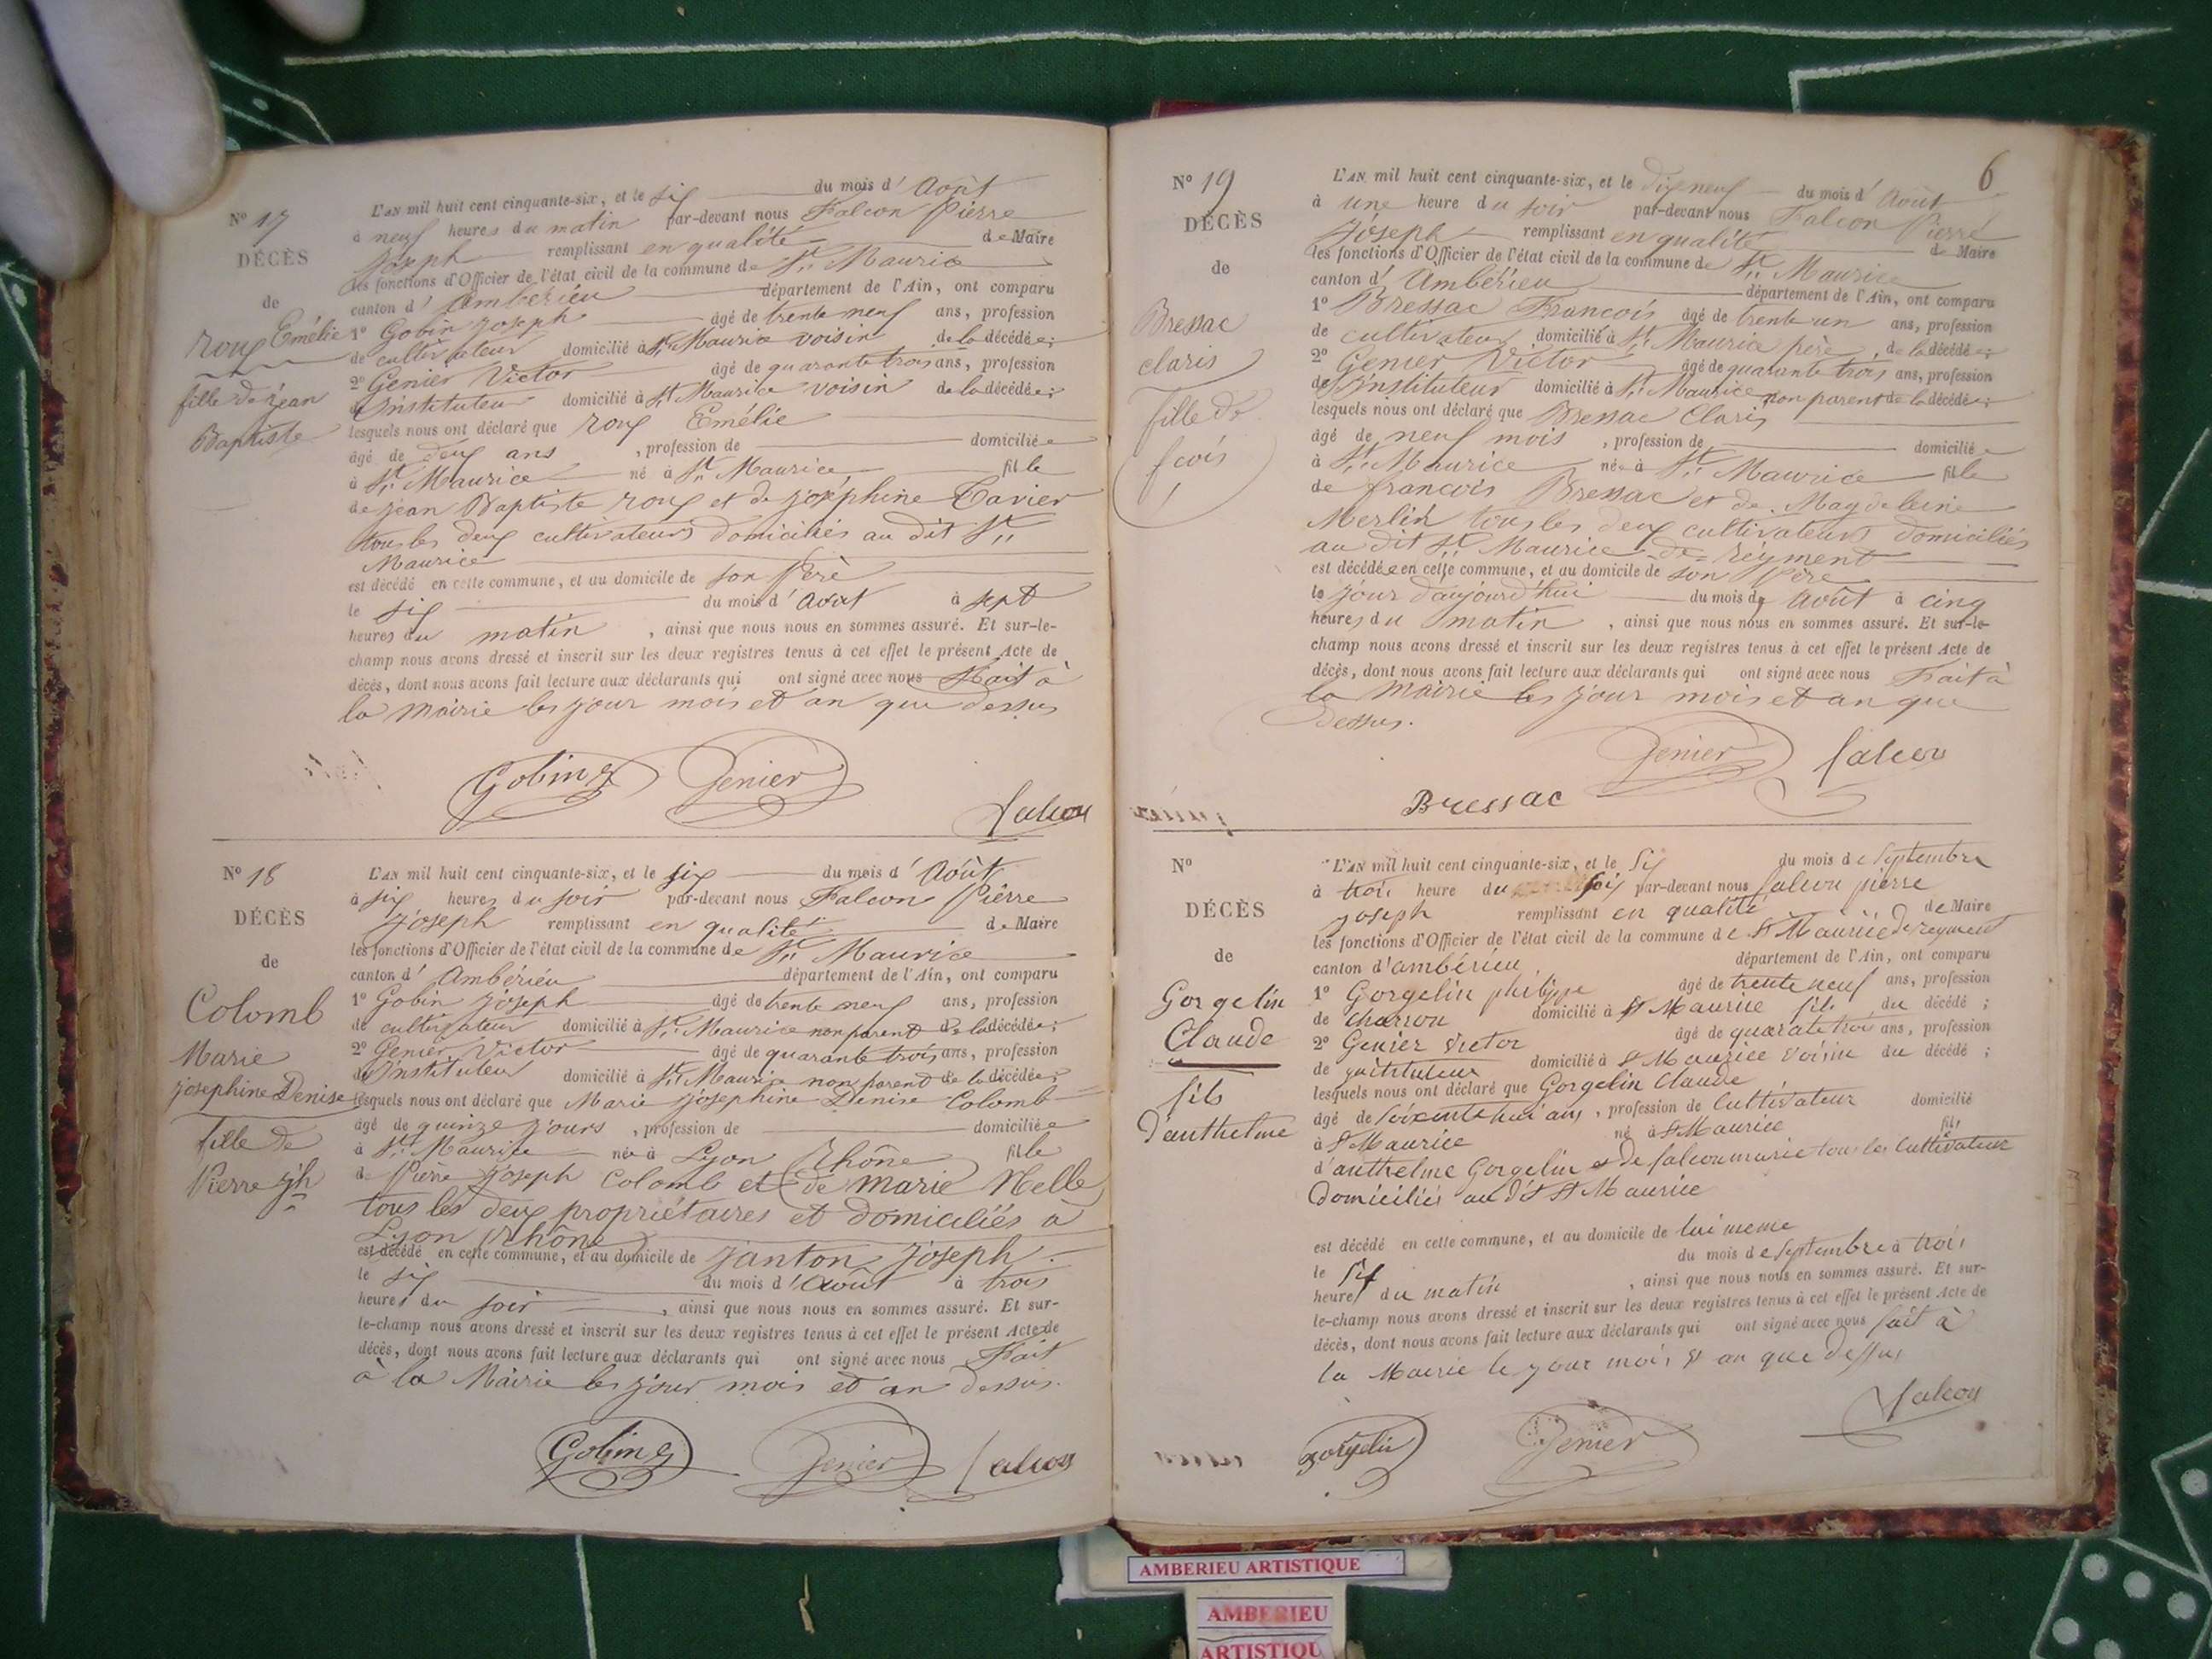 N° 17
DÉCÈS
de
roux Emélie
fille de jean
Baptiste
L'AN mil huit cent cinquante-six, et le six du mois d'Août
à neuf heures du matin par-devant nous Falcon Pierre
joseph remplissant en qualité de Maire
les fonctions d'Officier de l'état civil de la commune de St Maurice
canton d'Ambérieu département de l'Ain, ont comparu
1° Gobin joseph âgé de trente neuf ans, profession
de cultivateur domicilié à St Maurice voisin de la décédée;
2° Genier Victor âgé de quarante trois ans, profession
d'instituteur domicilié à St Maurice voisin de la décédée;
lesquels nous ont déclaré que roux Emélie
âgé de deux ans, profession de domiciliée
à St Maurice né à St Maurice fille
de jean Baptiste roux et de joséphine Tavier
tous les deux cultivateurs domiciliés au dit St
Maurice
est décédé en cette commune, et au domicile de son Père
le six du mois d'Août à sept
heures du matin, ainsi que nous nous en sommes assuré. Et sur-le-
champ nous avons dressé et inscrit sur les deux registres tenus à cet effet le présent Acte de
décès, dont nous avons fait lecture aux déclarants qui ont signé avec nous Fait à
la Mairie les jour mois et an que dessus
Gobin Genier
falcon
N° 18
DÉCÈS
de
Colomb
Marie
josephine Denise
fille de
Pierre jh
L'AN mil huit cent cinquante-six, et le six du mois d'Août
à six heures du soir par-devant nous Falcon Pierre
joseph remplissant en qualité de Maire
les fonctions d'Officier de l'état civil de la commune de St Maurice
canton d'Ambérieu département de l'Ain, ont comparu
1° Gobin joseph âgé de trente neuf ans, profession
de cultivateur domicilié à St Maurice non parent de la décédée;
2° Genier Victor âgé de quarante trois ans, profession
d'instituteur domicilié à St Maurice non parent de la décédée;
lesquels nous ont déclaré que Marie josephine Denise Colomb
âgé de quinze jours, profession de domiciliée
à St Maurice née à Lyon Rhône fille
de Pierre joseph Colomb et de Marie Nelle
tous les deux propriétaires et domiciliés a
Lyon Rhône
est décédé en cette commune, et au domicile de janton joseph
le six du mois d'Août à trois
heures du soir, ainsi que nous nous en sommes assuré. Et sur-
le-champ nous avons dressé et inscrit sur les deux registres tenus à cet effet le présent Acte de
décès, dont nous avons fait lecture aux déclarants qui ont signé avec nous Fait
à la Mairie les jour mois et an dessus.
Gobin Genier falcon
6
N° 19
DÉCÈS
de
Bressac
claris
fille de
fcois
L'AN mil huit cent cinquante-six, et le dix neuf du mois d'Août
à une heure du soir par-devant nous Falcon Pierre
joseph remplissant en qualité de Maire
les fonctions d'Officier de l'état civil de la commune de St Maurice
canton d'Ambérieu département de l'Ain, ont comparu
1° Bressac Francois âgé de trente un ans, profession
de cultivateur domicilié à St Maurice père de la décédée;
2° Genier Victor âgé de quarante trois ans, profession
d'instituteur domicilié à St Maurice non parent de la décédée;
lesquels nous ont déclaré que Bressac Claris
âgé de neuf mois, profession de domiciliée
à St Maurice née à St Maurice fille
de francois Bressac et de Magdeleine
Merlin tous les deux cultivateurs domiciliés
au dit St Maurice de réyment
est décédée en cette commune, et au domicile de son Père
le jour d'aujourd'hui du mois d'Août à cinq
heures du matin, ainsi que nous nous en sommes assuré. Et sur-le-
champ nous avons dressé et inscrit sur les deux registres tenus à cet effet le présent Acte de
décès, dont nous avons fait lecture aux déclarants qui ont signé avec nous Fait à
la Mairie les jour mois et an que
dessus.
Genier falcon
Bressac
N°
DÉCÈS
de
Gorgelin
Claude
fils
d'anthelme
L'AN mil huit cent cinquante-six, et le six du mois de septembre
à trois heure du soir par-devant nous falcon pierre
joseph remplissant en qualité de Maire
les fonctions d'Officier de l'état civil de la commune de St Maurice de reyment
canton d'ambérieu département de l'Ain, ont comparu
1° Gorgelin philippe âgé de trente neuf ans, profession
de charron domicilié à St Maurice fils du décédé;
2° Genier Victor âgé de quarate trois ans, profession
de institeteur domicilié à St Maurice voisin du décédé;
lesquels nous ont déclaré que Gorgelin Claude
âgé de soixente huit ans, profession de Cultivateur domicilié
à St Maurice né à St Maurice fils
d'anthelme Gorgelin et de falcon marie tous les Cultivateur
Domiciliés au dit St Maurice
est décédé en cette commune, et au domicile de lui meme
le six du mois de septembre à trois
heures du matin, ainsi que nous nous en sommes assuré. Et sur-
le-champ nous avons dressé et inscrit sur les deux registres tenus à cet effet le présent Acte de
décès, dont nous avons fait lecture aux déclarants qui ont signé avec nous fait à
la Mairie le jour mois et an que dessus
falcon
gorgelin Genier
AMBERIEU ARTISTIQUE
AMBERIEU
ARTISTIQU